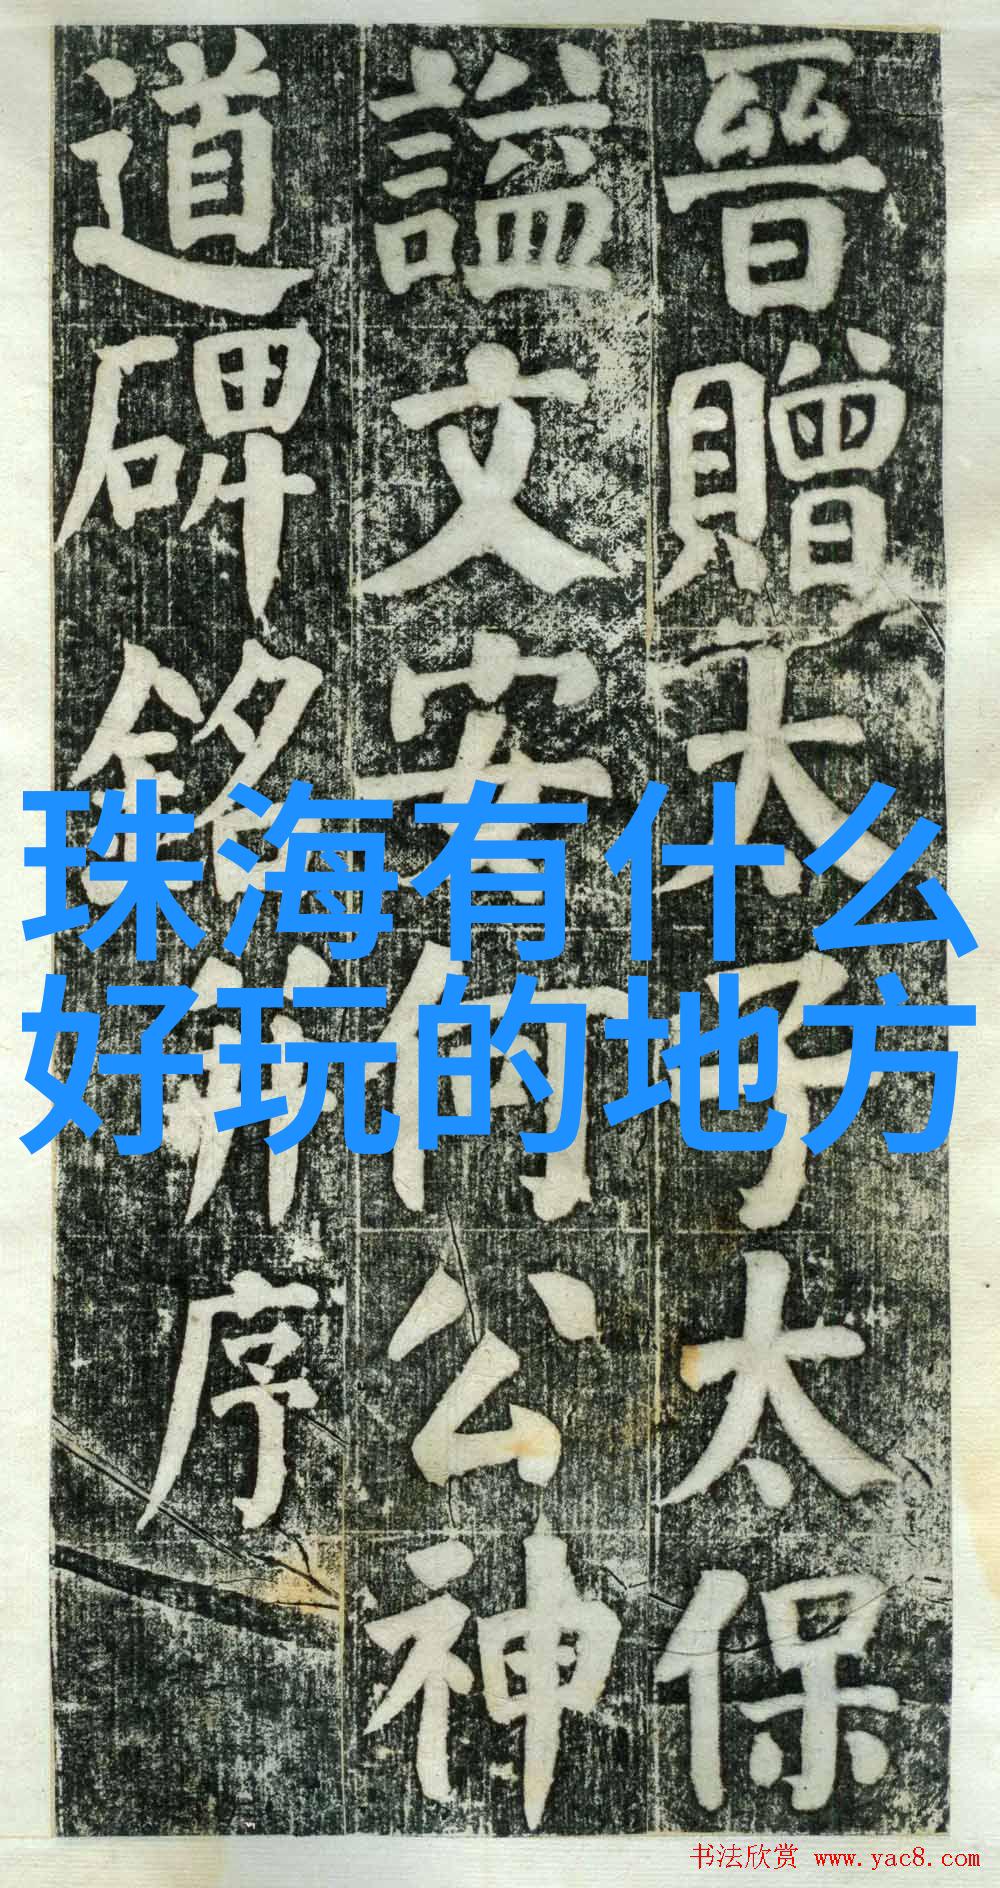 晉贈太子太保
謚文安何公神
道碑銘并序
珠海有什么
好玩的地方
书法欣赏 www.yac8.com